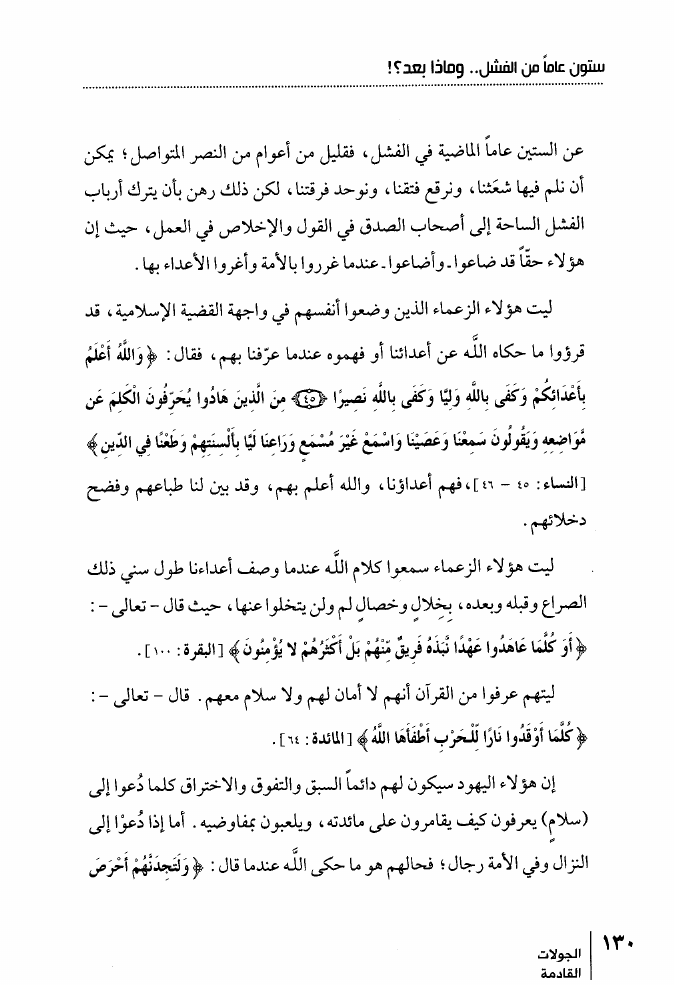 ستون عاماً من الفشل.. وماذا بعد؟!
عن الستين عاماً الماضية في الفشل، فقليل من أعوام من النصر المتواصل؛ يمكن
أن نلم فيها شعَثنا، ونرقع فتقنا، ونوحد فرقتنا، لكن ذلك رهن بأن يترك أرباب
الفشل الساحة إلى أصحاب الصدق في القول والإخلاص في العمل، حيث إن
هؤلاء حقّاً قد ضاعوا ـ وأضاعوا ـ عندما غرروا بالأمة وأغروا الأعداء بها.
ليت هؤلاء الزعماء الذين وضعوا أنفسهم في واجهة القضية الإسلامية، قد
قرؤوا ما حكاه اللَّه عن أعدائنا أو فهموه عندما عرّفنا بهم، فقال: ﴿وَاللَّهُ أَعْلَمُ
بِأَعْدَائِكُمْ وَكَفَى بِاللَّهِ وَلِيًّا وَكَفَى بِاللَّهِ نَصِيرًا ﴿٤٥﴾ مِنَ الَّذِينَ هَادُوا يُحَرِّفُونَ الْكَلِمَ عَن
مَّوَاضِعِهِ وَيَقُولُونَ سَمِعْنَا وَعَصَيْنَا وَاسْمَعْ غَيْرَ مُسْمَعٍ وَرَاعِنَا لَيًّا بِأَلْسِنَتِهِمْ وَطَعْنًا فِي الدِّينِ﴾
[النساء: ٤٥ – ٤٦]، فهم أعداؤنا، والله أعلم بهم، وقد بين لنا طباعهم وفضح
دخلائهم.
ليت هؤلاء الزعماء سمعوا كلام اللَّه عندما وصف أعداءنا طول سني ذلك
الصراع وقبله وبعده، بخِلالٍ وخصالٍ لم ولن يتخلوا عنها، حيث قال – تعالى –:
﴿أَوَ كُلَّمَا عَاهَدُوا عَهْدًا نَّبَذَهُ فَرِيقٌ مِّنْهُمْ بَلْ أَكْثَرُهُمْ لا يُؤْمِنُونَ﴾ [البقرة: ١٠٠].
ليتهم عرفوا من القرآن أنهم لا أمان لهم ولا سلام معهم. قال – تعالى –:
﴿كُلَّمَا أَوْقَدُوا نَارًا لِّلْحَرْبِ أَطْفَأَهَا اللَّهُ﴾ [المائدة: ٦٤].
إن هؤلاء اليهود سيكون لهم دائماً السبق والتفوق والاختراق كلما دُعوا إلى
(سلامٍ) يعرفون كيف يقامرون على مائدته، ويلعبون بمفاوضيه. أما إذا دُعوْا إلى
النزال وفي الأمة رجال؛ فحالهم هو ما حكى اللَّه عندما قال: ﴿وَلَتَجِدَنَّهُمْ أَحْرَصَ
١٣٠
الجولات
القادمة